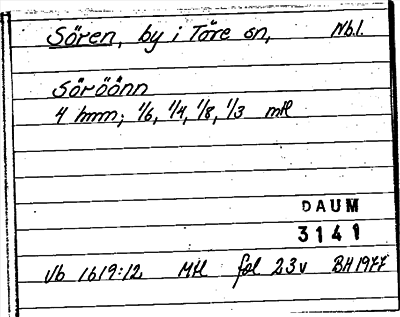 Sören, by i Töre sn, Nb.l.
Söröånn
4 hmm; 1/6, 1/4, 1/8, 1/3 mtl
DAUM
3141
Vb 1619:12 Mtl fol 23v BH 1977